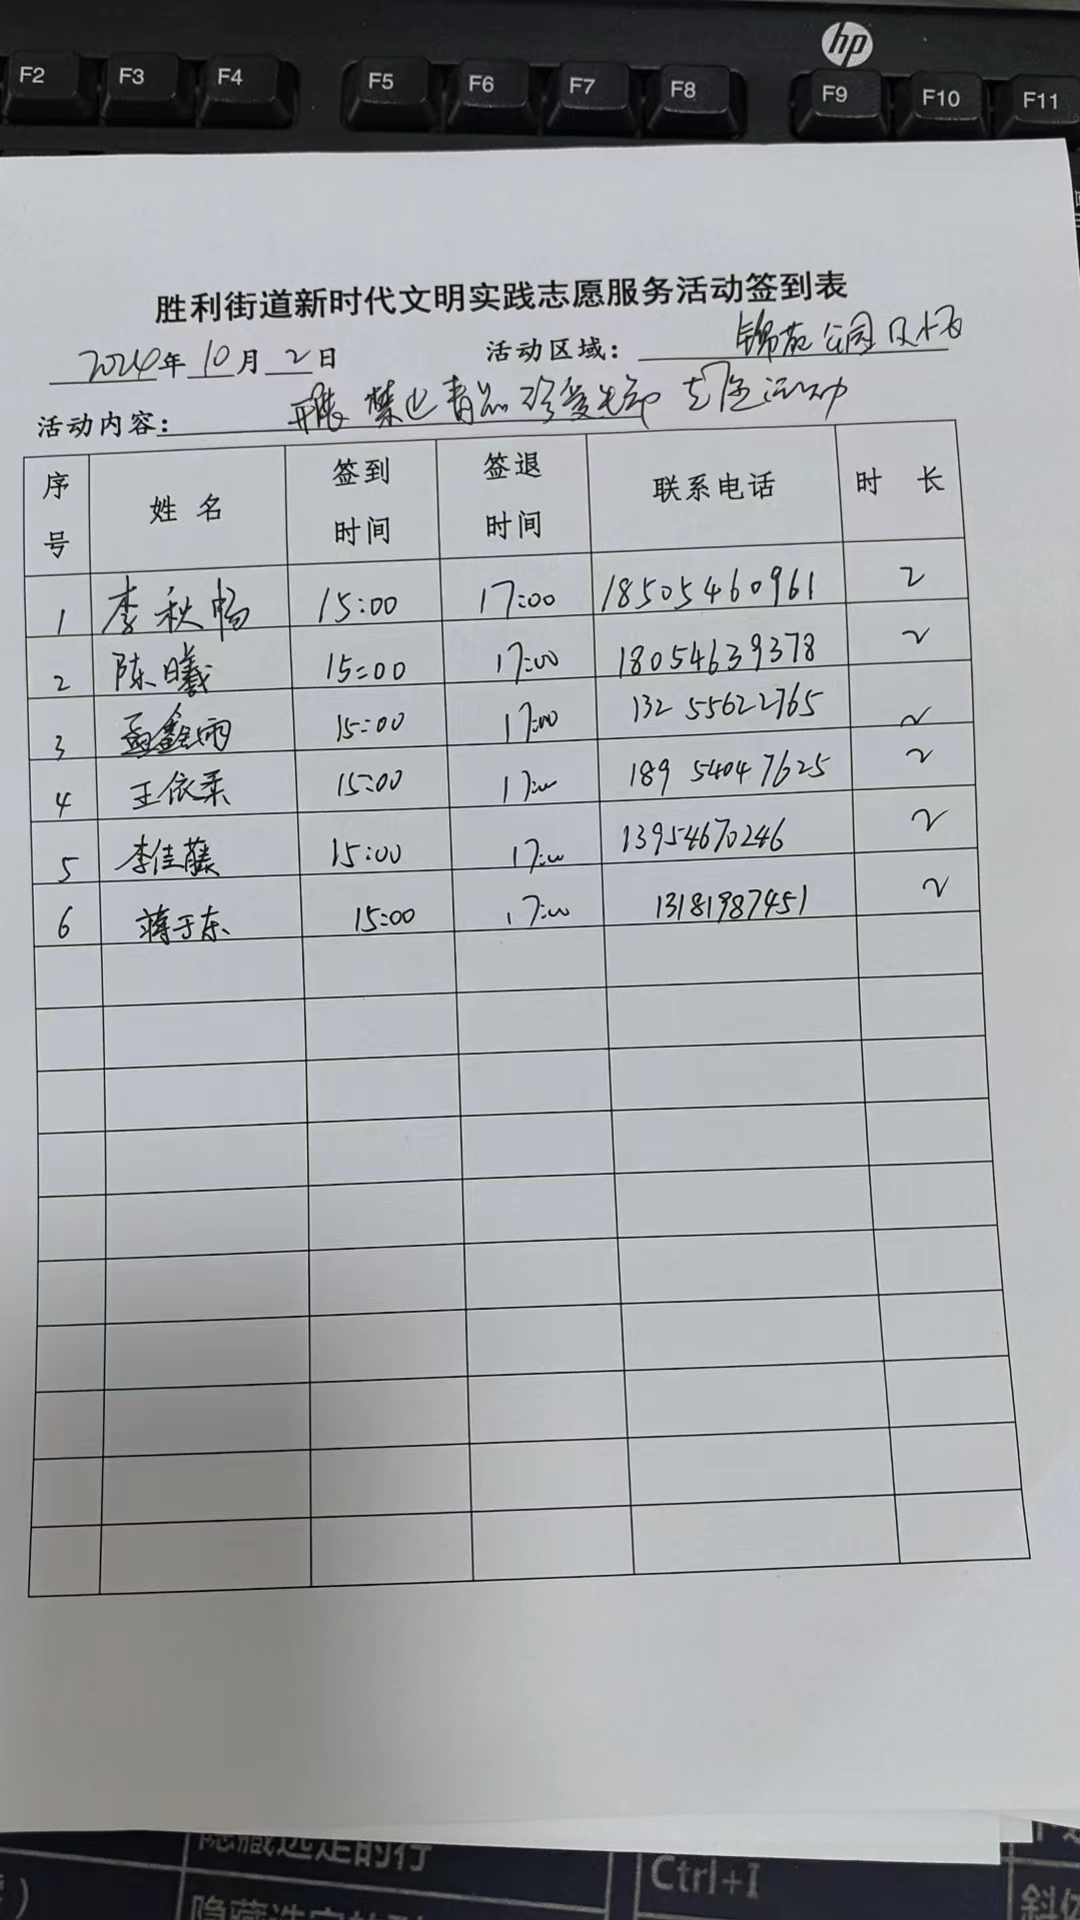 hp
F2 F3 F4 F5 F6 F7 F8 F9 F10 F11
胜利街道新时代文明实践志愿服务活动签到表
2024年10月2日 活动区域：锦苑公园及小区
活动内容：开展 禁 毒品 珍爱生命 志愿活动
序号 姓名 签到时间 签退时间 联系电话 时长
1 李秋畅 15:00 17:00 18505460961 2
2 陈曦 15:00 17:00 18054639378 2
3 孟鑫雨 15:00 17:00 132 55622765 2
4 王依柔 15:00 17:00 189 5404 7625 2
5 李佳藤 15:00 17:00 13954670246 2
6 蒋于东 15:00 17:00 13181987451 2
隐藏选定的行 Ctrl+I
隐藏选定的列 斜体